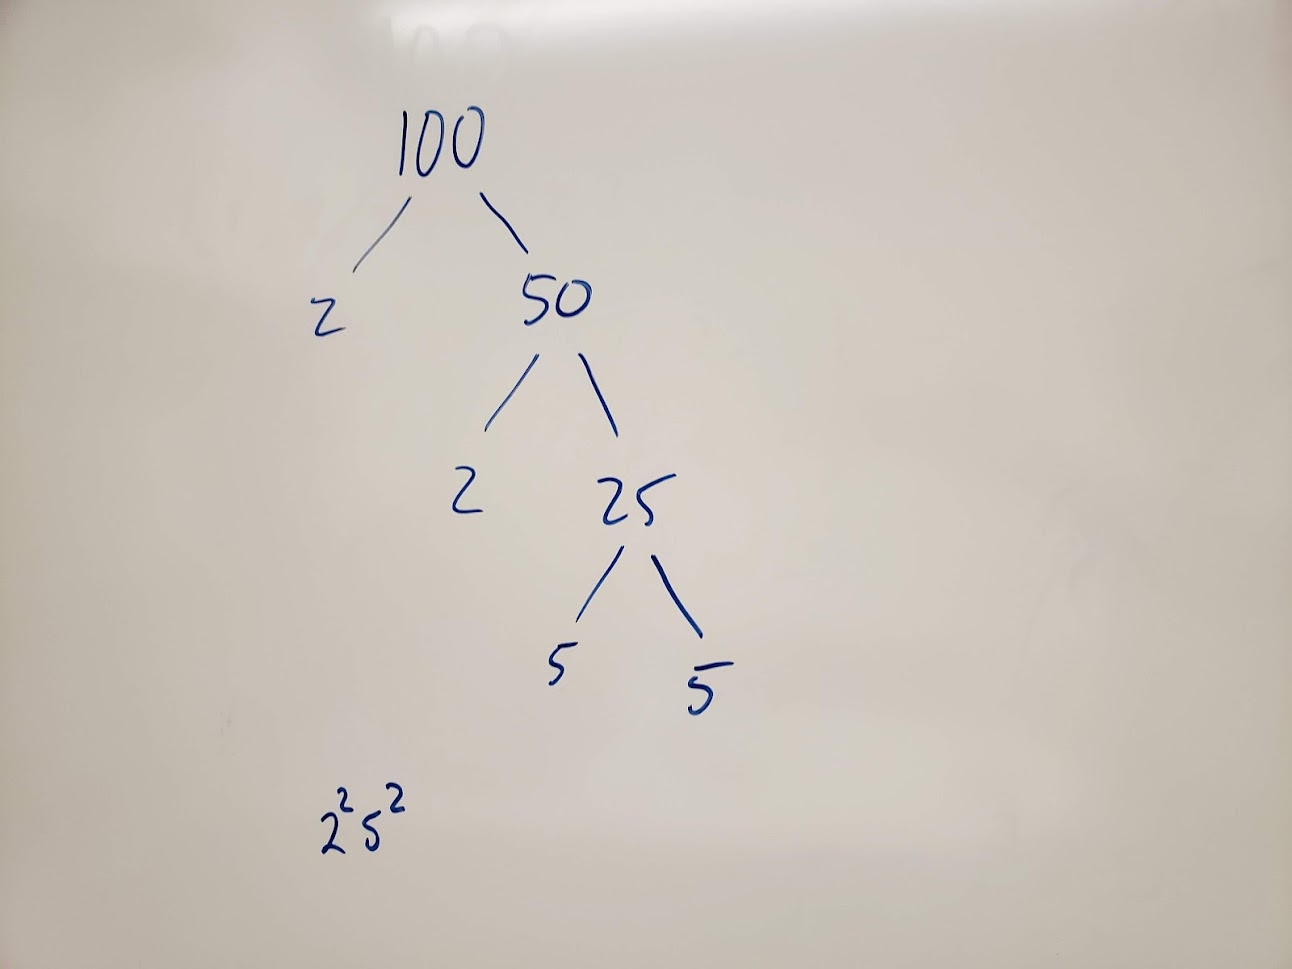 100
2 50
2 25
5 5
2²5²